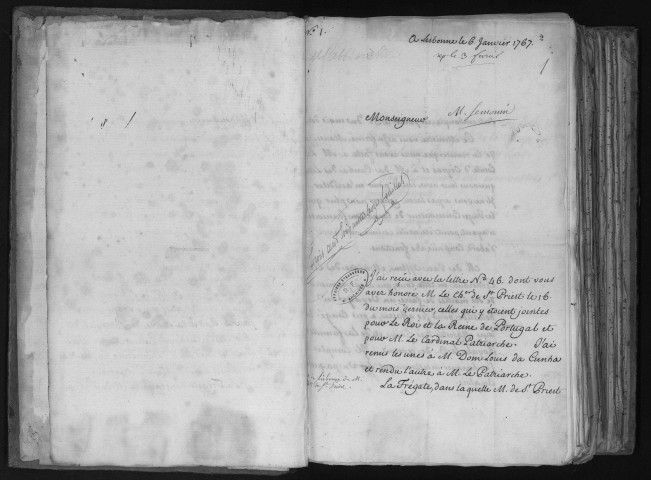 N.º 1.
A Lisbonne le 6. Janvier 1767.
Monseigneur
J'ai reçu avec la lettre Nº 46. dont vous
avez honoré M. Le Chᵉʳ de Sᵗ Priest le 16
du mois dernier, celles qui y étoient jointes
pour Le Roi et la Reine de Portugal et
pour M. Le Cardinal Patriarche. J'ai
remis les unes à M. Dom Louis da Cunha
et rendu l'autre à M. Le Patriarche.
La Frégate, dans laquelle M. de Sᵗ Priest